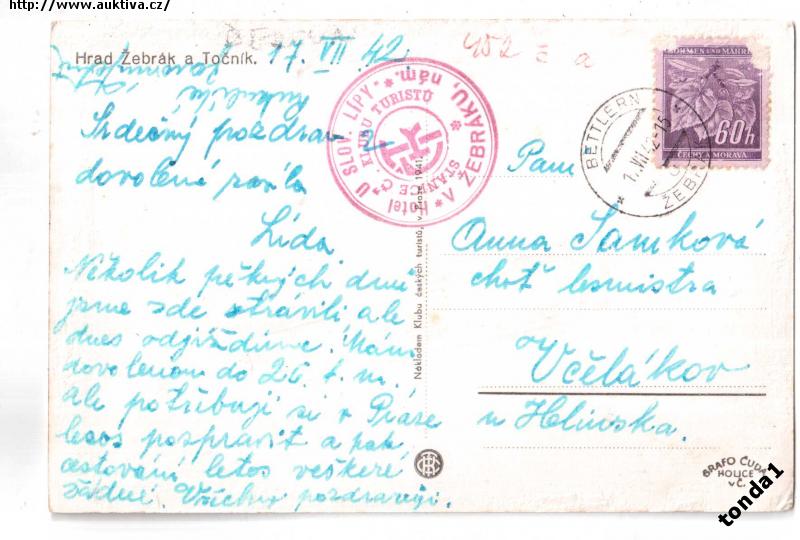 http://www.auktiva.cz/
Hrad Žebrák a Točník.
17. VII 42
452
a
Srdečný pozdrav z
dovolené
Lída
Několik pěkných dnů
jsme zde strávili ale
dnes odjíždíme. Mám
dovolenou do 26. t. m.
ale potřebuji si v Praze
leccos pospravit a pak
cestování letos veškeré
žádné. Všichni pozdravují.
Hotel U SLOV. LÍPY
V ŽEBRÁKU, nám.
STANICE Čs. KLUBU TURISTŮ
Nákladem Klubu českých turistů, v Praze 1941.
BÖHMEN UND MÄHREN
60h
ČECHY A MORAVA
BETTLERN
ŽEBRÁK
Paní
Anna Samková
choť lesmistra
Včelákov
u Hlinska.
GRAFO ČUDA
HOLICE
v Č.
tonda1